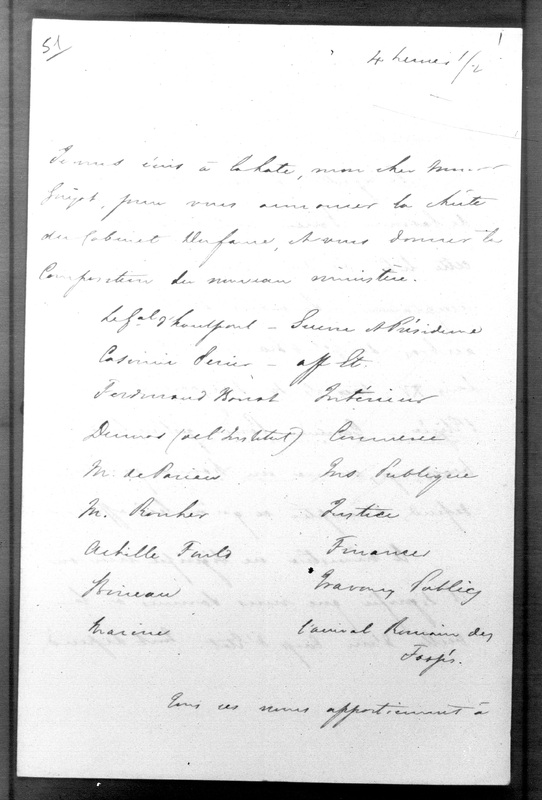 51
4 heures 1/2
Je vous écris à la hate, mon cher Mon
Guizot, pour vous annoncer la chûte
du Cabinet Dufaure, et vous donner la
Composition du nouveau ministère.
Le Gal d'hautpoul - Guerre et Présidence
Casimir Perier - aff Et.
Ferdinand Barrot Intérieur
Dumas (de l'Institut) Commerce
M. de Parieu Ins. Publique
M. Rouher Justice
Achille Fould Finances
Bineau Travaux Publics
Marine l'amiral Romain des
Fossés.
Tous ces noms appartiennent à